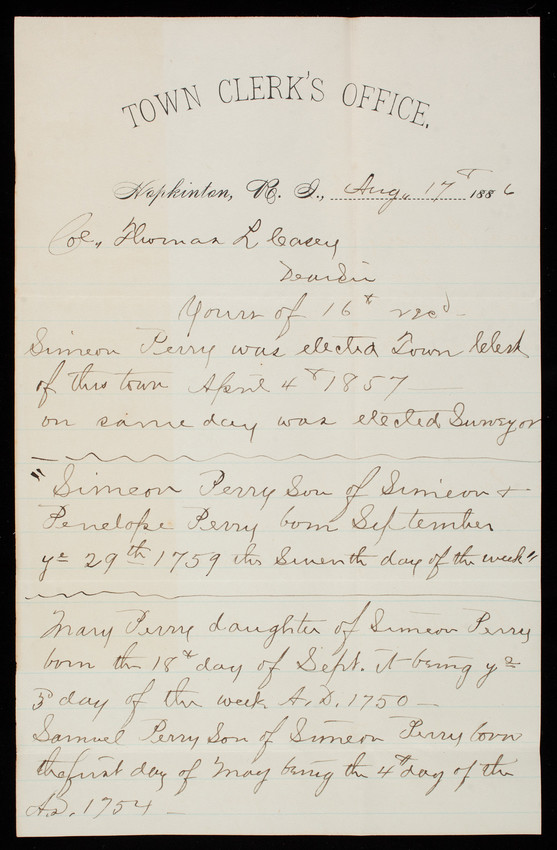 TOWN CLERK'S OFFICE.
Hopkinton, R. I., Aug, 17th 1886
Col, Thomas L Casey
Dear Sir
Yours of 16th recd
Simeon Perry was elected Town Clerk
of this town April 4th 1857
on same day was elected Surveyor
"Simeon Perry Son of Simeon &
Penelope Perry born September
ye 29th 1759 the Seventh day of the week"
Mary Perry daughter of Simeon Perry
born the 18th day of Sept. it being ye
3d day of the week A.D. 1750
Samuel Perry Son of Simeon Perry born
the first day of May being the 4th day of the
A.D. 1754